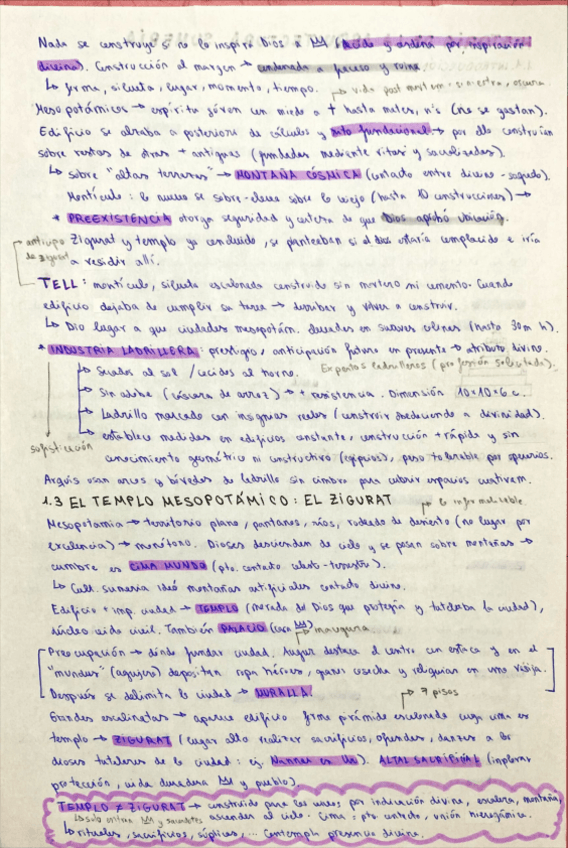 Nada se construye si no lo inspira Dios a M (ordena por inspiración
divina). Construcción al margen → condenada a fracaso y ruina.
↳ forma, silueta, lugar, momento, tiempo. → vida post mortem, siniestra, oscura.
Mesopotámicos → espíritu joven con miedo a † hasta
Edificio se alzaba a posteriori de cálculos y rito fundacional → por ello construían
sobre restos de otras + antiguas (fundadas mediante ritos y sacralizadas).
↳ sobre "altas terrazas" → MONTAÑA CÓSMICA (contacto entre divino - sagrado).
Montículo: lo nuevo se sobre-eleva sobre lo viejo (hasta 10 construcciones) →
* PREEXISTENCIA otorga seguridad y certeza de que Dios aprobó ubicación.
anticipo de zigurat
Zigurat y templo ya concluido, se planteaban si el dios estaría complacido e iría
a residir allí.
TELL: montículo, silueta escalonada construido sin mortero ni cemento. Cuando
edificio dejaba de cumplir su tarea → derribar y volver a construir.
↳ Dio lugar a que ciudades mesopotám. elevadas en suaves colinas (hasta 30m h).
* INDUSTRIA LADRILLERA: prestigio, anticipación futuro en presente → atributo divino.
Expertos ladrilleros (profesión solicitada).
↳ Secados al sol / cocidos al horno.
↳ Sin adobe (cáscara de arroz) → + resistencia. Dimensión 10x10x6 c.
↳ Ladrillo marcado con insignias reales (construir obedeciendo a divinidad).
↳ establece medidas en edificios constante, construcción + rápida y sin
sofisticación
conocimiento geométrico ni constructivo (egipcios), peso tolerable por operarios.
Arquis usan arcos y bóvedas de ladrillo sin cimbra para cubrir espacios
1.3 EL TEMPLO MESOPOTÁMICO: EL ZIGURAT
Mesopotamia → territorio plano, pantanos, ríos, rodeado de desierto (no lugar por
excelencia) → monótono. Dioses descienden de cielo y se posan sobre montañas →
cumbre es CIMA MUNDO (pto. contacto celeste-terrestre).
↳ Cult. sumeria ideó montañas artificiales contacto divino.
Edificio + imp. ciudad → TEMPLO (morada del Dios que protegía y tutelaba la ciudad),
núcleo vida civil. También PALACIO (casa M) → inaugura
Preocupación → dónde fundar ciudad. Augur destaca el centro con estaca y en el
"mundus" (agujero) depositan ropa héroes, granos cosecha y reliquias en una vasija.
Después se delimita la ciudad → MURALLA.
→ 7 pisos
Grandes escalinatas → aparece edificio forma pirámide escalonada cuya cima es
templo → ZIGURAT (lugar alto realizar sacrificios, ofrendas, danzas a los
dioses tutelares de la ciudad: ej. Nannar en Ur). ALTAL SACRIFICIAL (implorar
protección, vida duradera M y pueblo).
TEMPLO ≠ ZIGURAT → construido para los reyes por indicación divina, escalera, montaña,
↳ solo entran M y sacerdotes ascender al cielo. Cima: pto contacto, unión hierogámica.
↳ rituales, sacrificios, súplicas,... Contempla presencia divina.